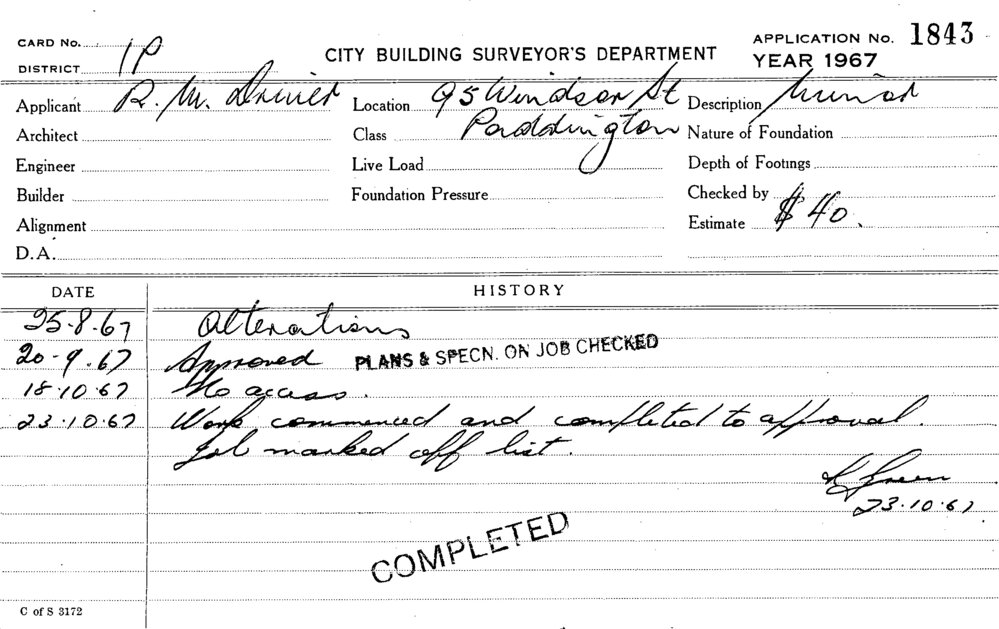 CARD No.
DISTRICT 1P
CITY BUILDING SURVEYOR'S DEPARTMENT
APPLICATION No. 1843
YEAR 1967
Applicant R. M. Driver Location 95 Windsor St Description Minor
Architect Class Paddington Nature of Foundation
Engineer Live Load Depth of Footings
Builder Foundation Pressure Checked by
Alignment Estimate $40.
D.A.
DATE HISTORY
25.8.67 Alterations
20-9.67 Approved PLANS & SPECN. ON JOB CHECKED
18.10.67 No access.
23.10.67 Work commenced and completed to approval.
Job marked off list.
Green
23.10.67
COMPLETED
C of S 3172